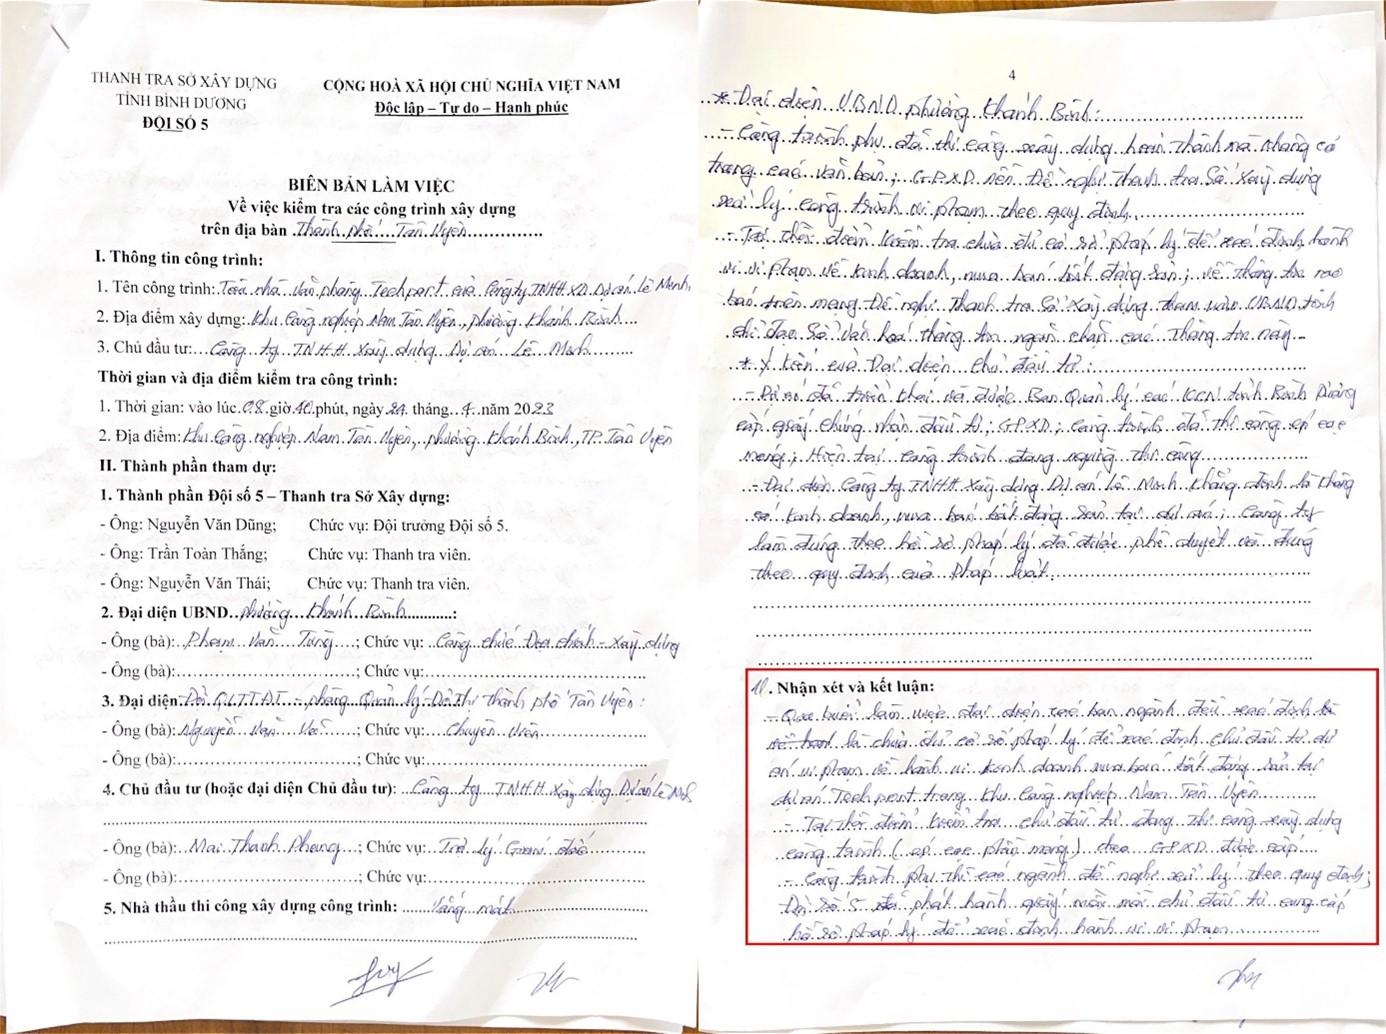 THANH TRA SỞ XÂY DỰNG
TỈNH BÌNH DƯƠNG
ĐỘI SỐ 5
CỘNG HOÀ XÃ HỘI CHỦ NGHĨA VIỆT NAM
Độc lập – Tự do – Hạnh phúc
BIÊN BẢN LÀM VIỆC
Về việc kiểm tra các công trình xây dựng
trên địa bàn Thành phố Tân Uyên
I. Thông tin công trình:
1. Tên công trình: Toà nhà văn phòng Techport của Công ty TNHH XD Dự án Lê Minh,
2. Địa điểm xây dựng: Khu Công nghiệp Nam Tân Uyên, phường Khánh Bình
3. Chủ đầu tư: Công ty TNHH Xây dựng Dự án Lê Minh
Thời gian và địa điểm kiểm tra công trình:
1. Thời gian: vào lúc 08 giờ 10 phút, ngày 24 tháng 4 năm 2023
2. Địa điểm: Khu Công nghiệp Nam Tân Uyên, phường Khánh Bình, TP. Tân Uyên
II. Thành phần tham dự:
1. Thành phần Đội số 5 – Thanh tra Sở Xây dựng:
- Ông: Nguyễn Văn Dũng; Chức vụ: Đội trưởng Đội số 5.
- Ông: Trần Toàn Thắng; Chức vụ: Thanh tra viên.
- Ông: Nguyễn Văn Thái; Chức vụ: Thanh tra viên.
2. Đại diện UBND phường Khánh Bình:
- Ông (bà): Phạm Văn Tùng; Chức vụ: Công chức Địa chính - Xây dựng
- Ông (bà): ; Chức vụ:
3. Đại diện Đội QLTTĐT, phòng Quản lý Đô Thị thành phố Tân Uyên:
- Ông (bà): Nguyễn Văn; Chức vụ: Chuyên viên
- Ông (bà): ; Chức vụ:
4. Chủ đầu tư (hoặc đại diện Chủ đầu tư): Công ty TNHH Xây dựng Dự án Lê Minh
- Ông (bà): Mai Thanh Phong; Chức vụ: Trợ lý Giám đốc
- Ông (bà): ; Chức vụ:
5. Nhà thầu thi công xây dựng công trình: Vắng mặt
4
* Đại diện UBND phường Khánh Bình:
- Công trình phụ đã thi công xây dựng hoàn thành mà không có
trong các văn bản; GPXD nên Đề nghị Thanh tra Sở Xây dựng
xử lý công trình vi phạm theo quy định.
- Tại thời điểm kiểm tra chưa đủ cơ sở pháp lý để xác định hành
vi vi phạm về kinh doanh, mua bán bất động sản; về thông tin rao
bán trên mạng Đề nghị Thanh tra Sở Xây dựng tham mưu UBND tỉnh
chỉ đạo Sở Văn hoá thông tin ngăn chặn các thông tin này
* Ý kiến của Đại diện chủ đầu tư:
- Dự án đã triển khai và được Ban Quản lý các KCN tỉnh Bình Dương
cấp giấy chứng nhận đầu tư; GPXD; công trình đã thi công ép cọc
móng; Hiện tại công trình đang ngưng thi công
- Đại diện Công ty TNHH Xây dựng Dự án Lê Minh khẳng định là không
có kinh doanh, mua bán bất động sản tại dự án; Công ty
làm đúng theo hồ sơ pháp lý đã được phê duyệt và đúng
theo quy định của pháp luật.
. Nhận xét và kết luận:
- Qua buổi làm việc đại diện các ban ngành đều xác định
là chưa đủ cơ sở pháp lý để xác định chủ đầu tư dự
án vi phạm về hành vi kinh doanh mua bán bất động sản tại
dự án Techport trong khu Công nghiệp Nam Tân Uyên
- Tại thời điểm kiểm tra chủ đầu tư đang thi công xây dựng
công trình (ép cọc phần móng) theo GPXD được cấp
- Công trình phụ thì các ngành đề nghị xử lý theo quy định;
Đội số 5 đã phát hành giấy mời mời chủ đầu tư cung cấp
hồ sơ pháp lý để xác định hành vi vi phạm